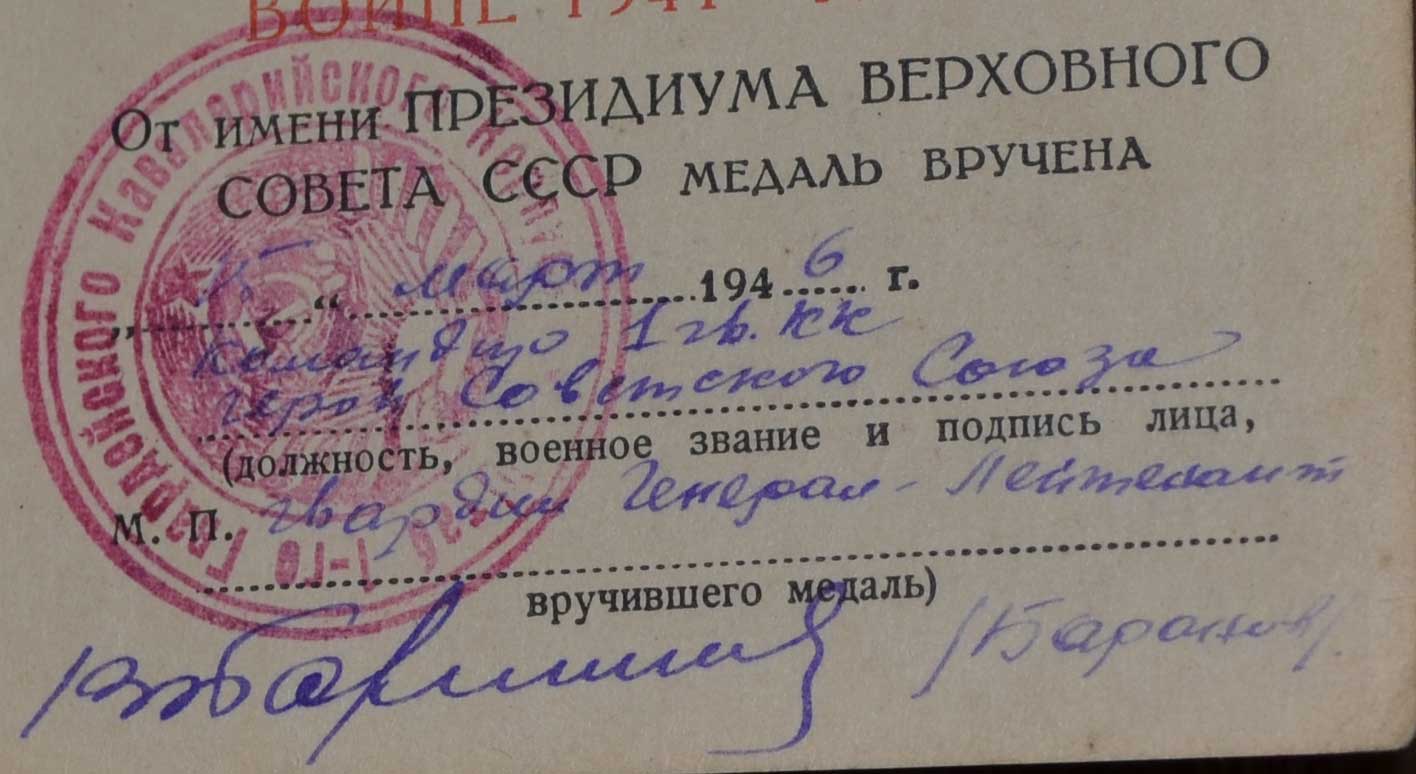 ВОЙНЕ 1941
От имени ПРЕЗИДИУМА ВЕРХОВНОГО
СОВЕТА СССР МЕДАЛЬ ВРУЧЕНА
„ “ март 1946 г.
1 гв. КК
герой Советского Союза
(должность, военное звание и подпись лица,
М. П. гвардии Генерал-Лейтенант
вручившего медаль)
/Баранов/
Гвардейского Кавалерийского
1-го